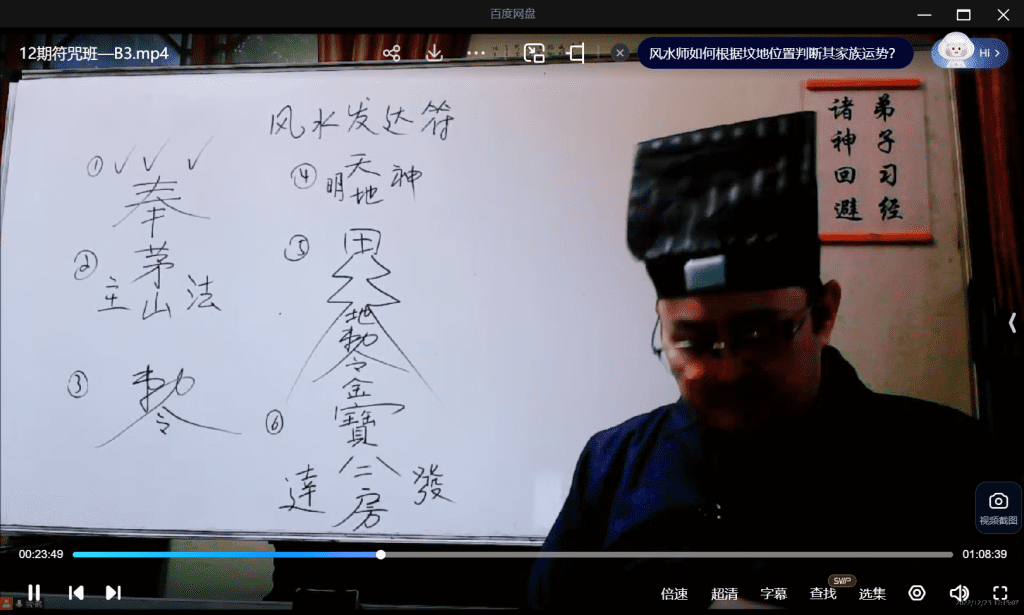 百度网盘
12期符咒班—B3.mp4
风水师如何根据坟地位置判断其家族运势?
Hi
风水发达符
①
奉
②
茅
主山法
③
勅
令
④
天
明地神
⑤
田
地
勅
令
⑥
金
寶
達房發
弟子习经
诸神回避
视频截图
00:23:49
01:08:39
倍速
超清
字幕
查找
SVIP
选集